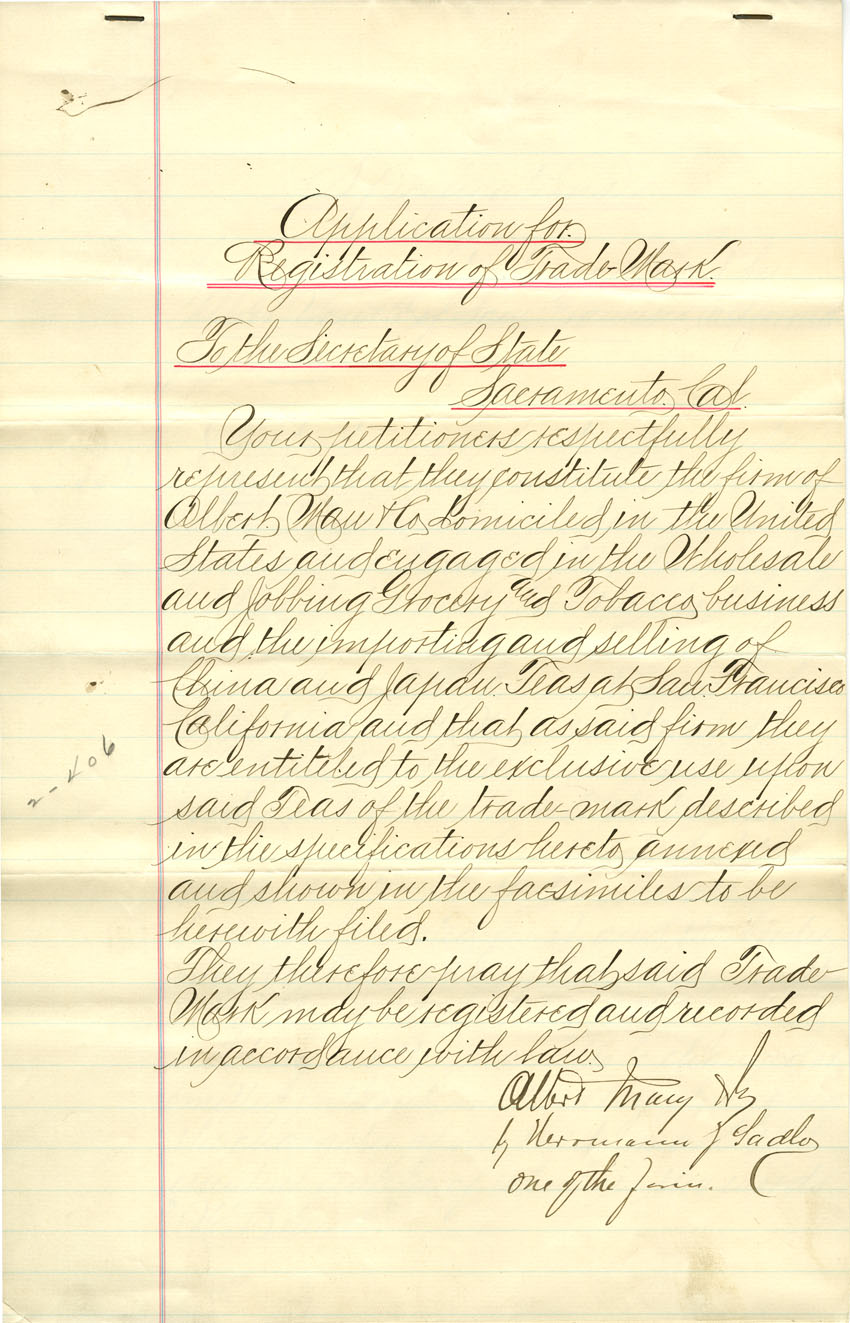 Application for.
Registration of Trade-Mark.
To the Secretary of State
Sacramento, Cal.
Your petitioners respectfully
represent that they constitute the firm of
Albert Mau & Co, domiciled in the United
States and engaged in the Wholesale
and Jobbing Grocery and Tobacco business
and the importing and selling of
China and Japan Teas at San Francisco
California and that as said firm they
are entitled to the exclusive use upon
said Teas of the trade-mark described
in the specifications hereto annexed
and shown in the facsimiles to be
herewith filed.
They therefore pray that said Trade
Mark may be registered and recorded
in accordance with law.
Albert Mau & Co
by Herrmann
one of the firm.
2-406